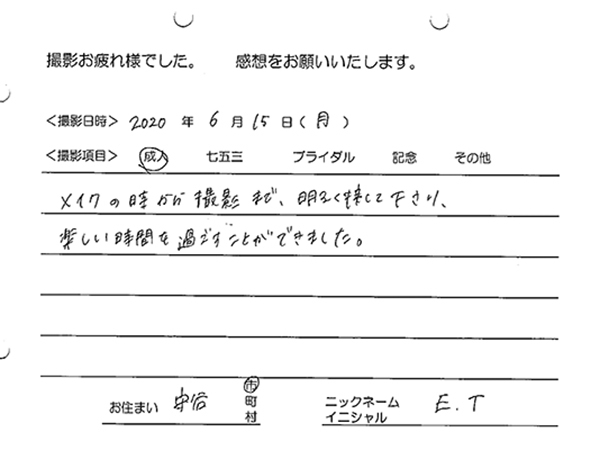 撮影お疲れ様でした。 感想をお願いいたします。
＜撮影日時＞ 2020 年 6 月 15 日（月）
＜撮影項目＞ 成人 七五三 ブライダル 記念 その他
メイクの時から撮影まで、明るく接して下さり、
楽しい時間を過ごすことができました。
お住まい 市町村 ニックネーム イニシャル E.T